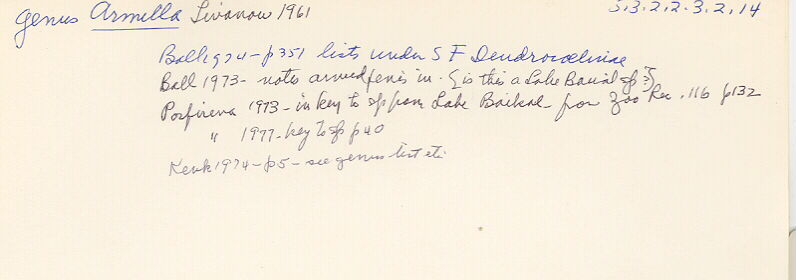 Genus Armilla Livanow 1961
5.3.2.2.3.2.14
Ball 1974 - p351 lists under SF Dendrocoelinae
Ball 1973 - notes armed penis in. {is this a Lake Baical sp?}
Porfireva 1973 - in key to sp from Lake Baikal from Zoo Rec. 116 p132
" 1977 - key to sp p40
Kenk 1974 - p5 - see genus list etc